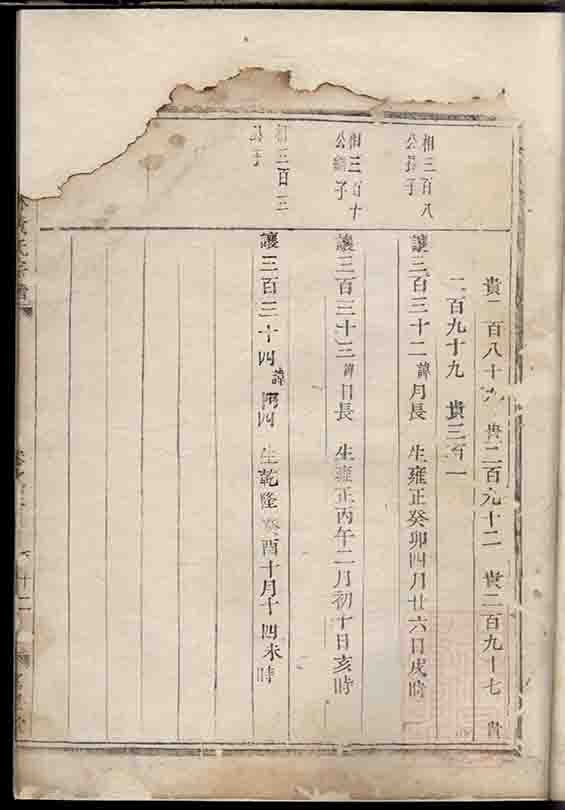 貴二百八十 貴二百九十二 貴二百九十七 貴
二百九十九 貴三百一
相三百八
公長子
讓三百三十二 諱月長 生雍正癸卯四月廿六日戌時
相三百十
公 子
讓三百三十三 諱日長 生雍正丙午二月初十日亥時
三百三
子
讓三百三十四 諱 四 生乾隆癸酉十月十四未時
黃氏宗譜